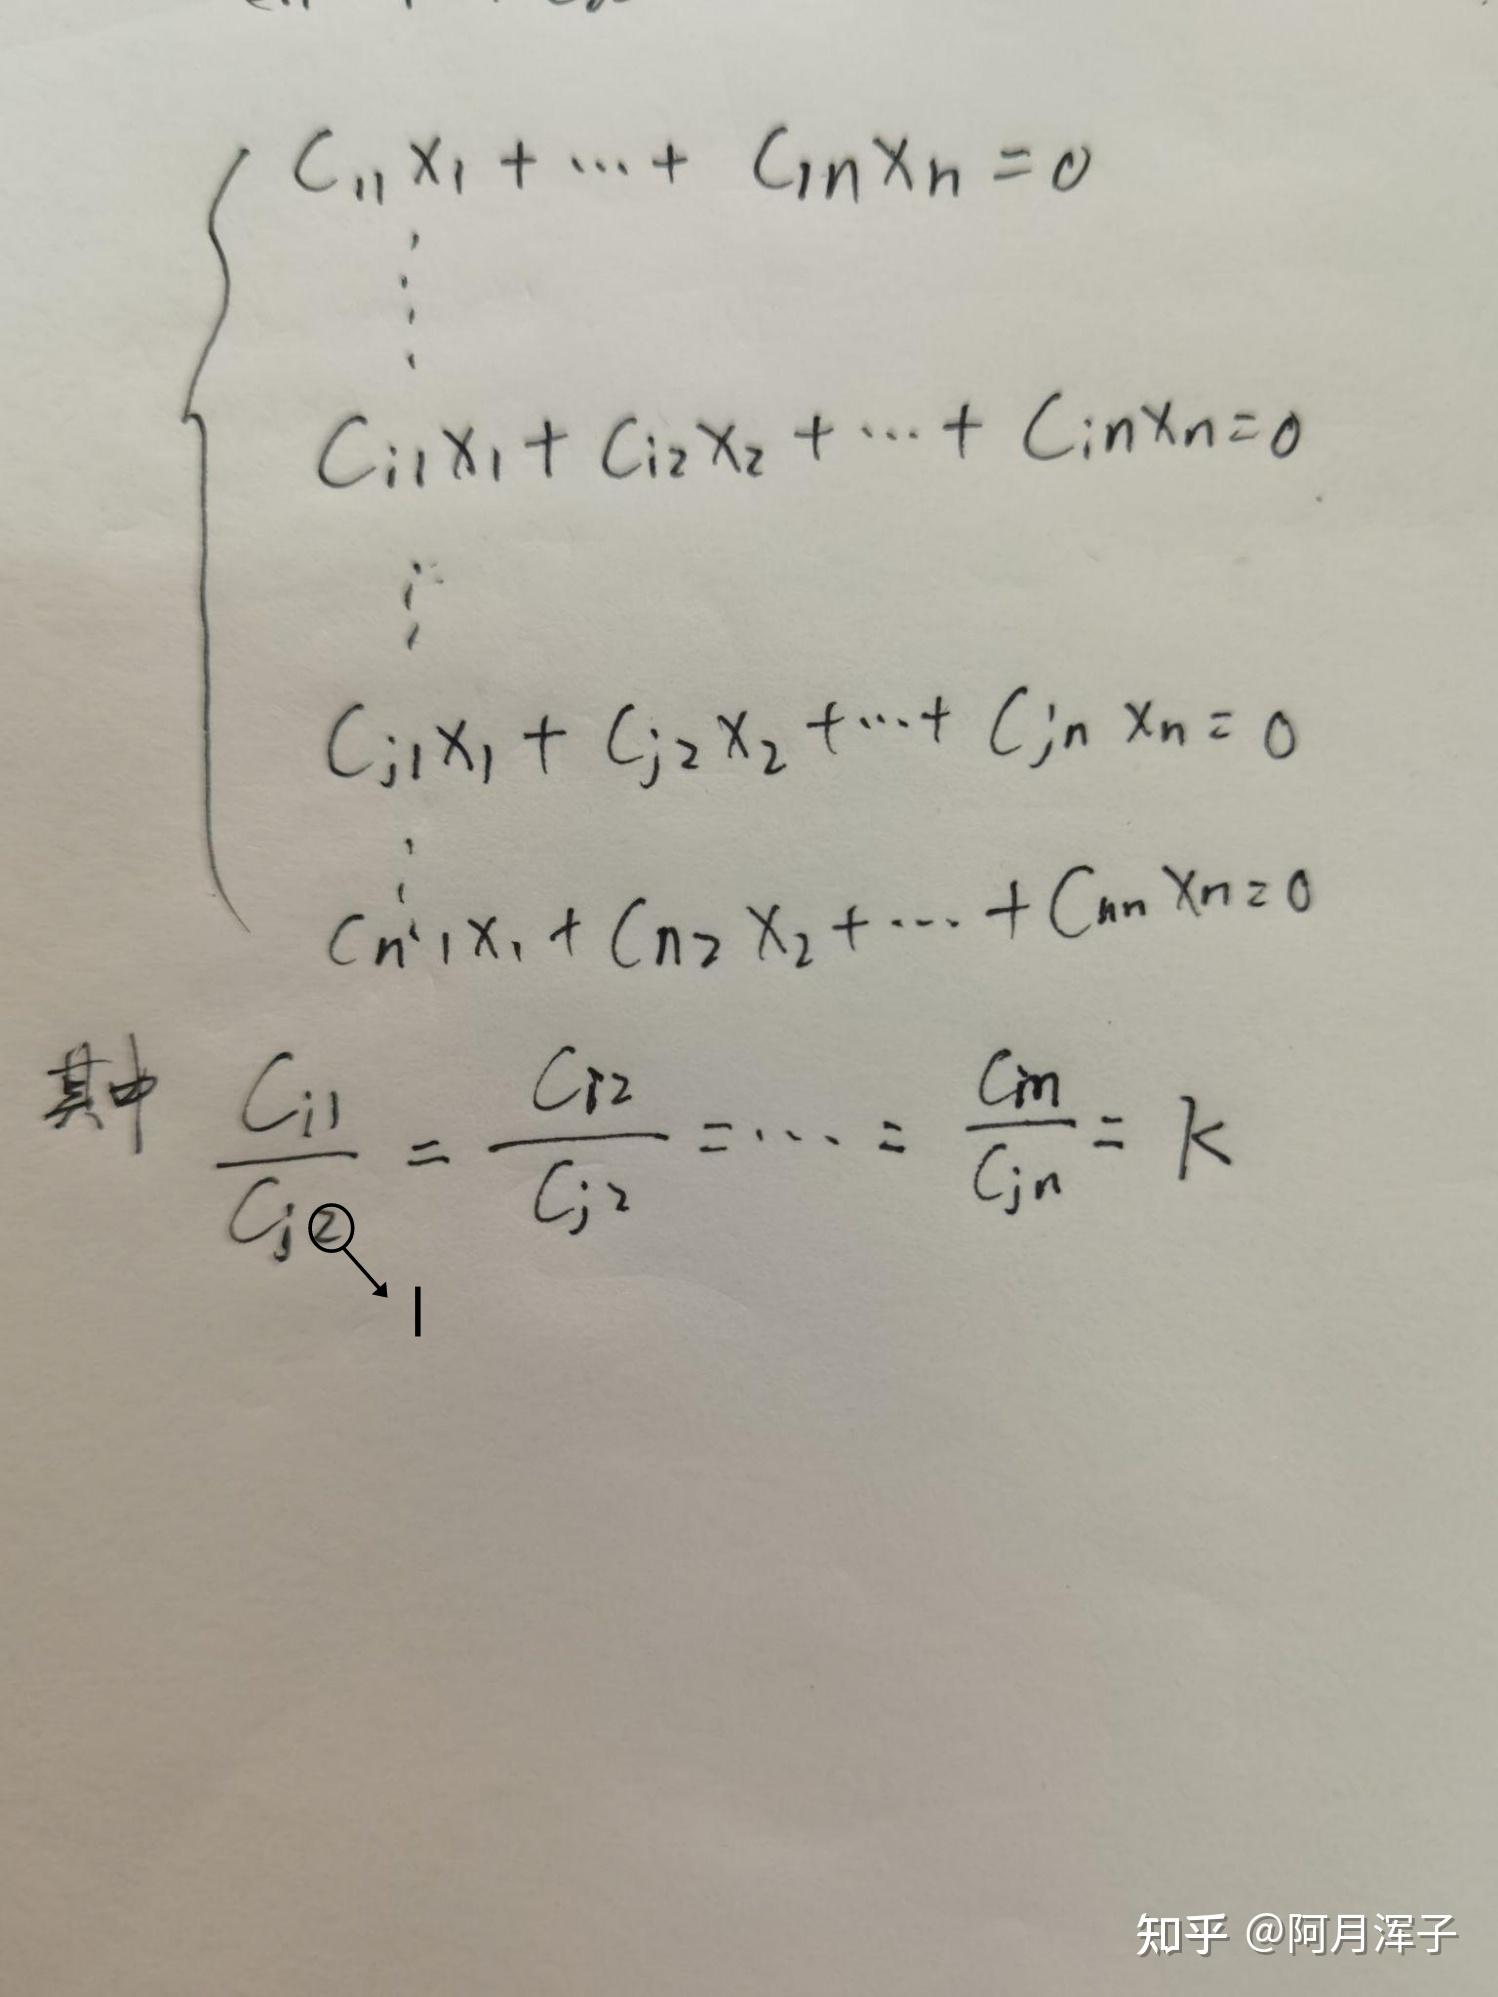 C₁₁x₁ + ··· + C₁ₙxₙ = 0
⋮
Cᵢ₁x₁ + Cᵢ₂x₂ + ··· + Cᵢₙxₙ = 0
⋮
Cⱼ₁x₁ + Cⱼ₂x₂ + ··· + Cⱼₙxₙ = 0
⋮
Cₙ₁x₁ + Cₙ₂x₂ + ··· + Cₙₙxₙ = 0
其中 Cᵢ₁/Cⱼ₂ = Cᵢ₂/Cⱼ₂ = ··· = Cᵢₙ/Cⱼₙ = k
1
知乎 @阿月浑子